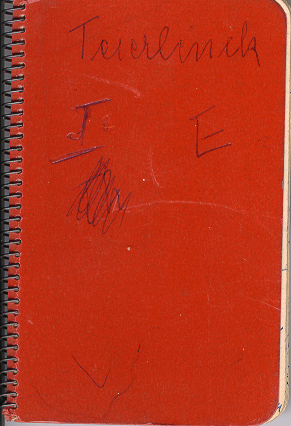 Teirlinck
I. E